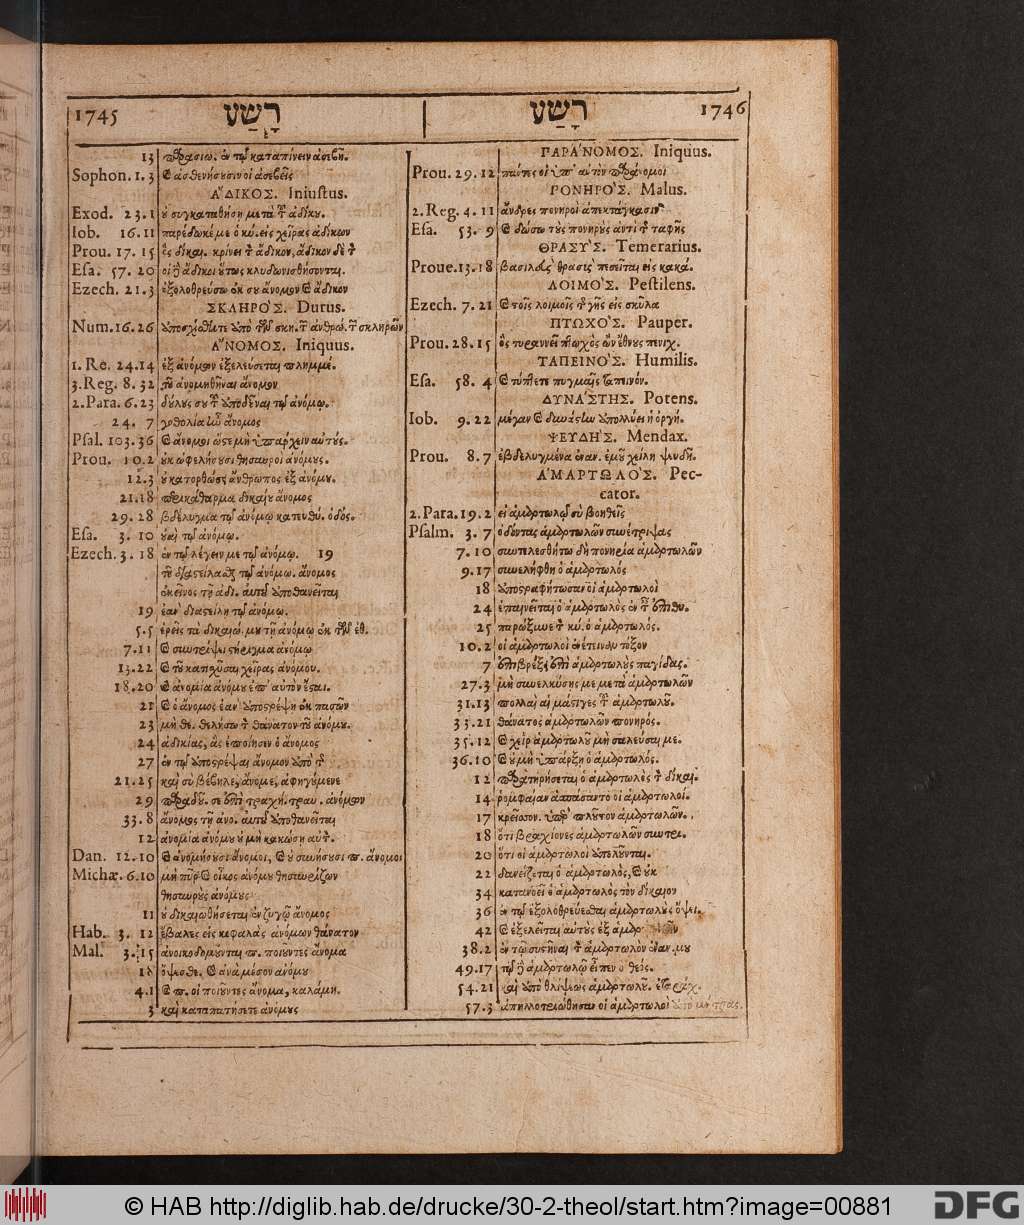 1745 רָשַׁע
13 ἐν τῷ καταπίνειν ἀσεβῆ.
Sophon. 1. 3 ἀσθενήσουσιν οἱ ἀσεβεῖς
ἌΔΙΚΟΣ. Iniustus.
Exod. 23.1 μετὰ τοῦ ἀδίκου.
Iob. 16.11 παρέδωκέ με ὁ κύ. εἰς χεῖρας ἀδίκων
Prou. 17. 15 ὃς δίκαι. κρίνει τὸν ἄδικον, ἄδικον δὲ τὸν
Esa. 57. 20 οἱ ἄδικοι οὕτως κλυδωνισθήσονται.
Ezech. 21.3 ἐξολοθρεύσω ἐκ σοῦ ἄνομον καὶ ἄδικον
ΣΚΛΗΡΌΣ. Durus.
Num. 16. 26 ἀπὸ τῶν σκη. τῶν ἀνθρώ. τῶν σκληρῶν
ἌΝΟΜΟΣ. Iniquus.
1. Re. 24.14 ἐξ ἀνόμων ἐξελεύσεται πλημμέ.
3. Reg. 8. 32 τοῦ ἀνομηθῆναι ἄνομον
2. Para. 6. 23 δούλους σου τοῦ ἀποδοῦναι τῷ ἀνόμῳ.
24. 7 γοθολία ἦν ἄνομος
Psal. 103. 36 καὶ ἄνομοι ὥστε μὴ ὑπάρχειν αὐτούς.
Prou. 10. 2 οὐκ ὠφελήσουσι θησαυροὶ ἀνόμους.
12.3 οὐ κατορθώσει ἄνθρωπος ἐξ ἀνόμου.
21.18 περικάθαρμα δικαίου ἄνομος
29. 28 βδέλυγμα τῷ ἀνόμῳ κατευθύ. ὁδός.
Esa. 3. 10 οὐαὶ τῷ ἀνόμῳ.
Ezech. 3. 18 ἐν τῷ λέγειν με τῷ ἀνόμῳ. 19
τοῦ διαστείλασθαι τῷ ἀνόμῳ. ἄνομος
ἐκεῖνος τῇ ἀδι. αὐτοῦ ἀποθανεῖται
19 ἐὰν διαστείλῃ τῷ ἀνόμῳ.
5. 5 ἐρεῖς τὰ δικαιώ. μου τῇ ἀνόμῳ ἐκ τῶν ἐθ.
7.11 καὶ συντρίψει στήριγμα ἀνόμῳ
13.22 καὶ τοῦ κατισχῦσαι χεῖρας ἀνόμου.
18.20 καὶ ἀνομία ἀνόμου ἐπ' αὐτὸν ἔσται.
21 καὶ ὁ ἄνομος ἐὰν ἀποστρέψῃ ἐκ πασῶν
23 μὴ θε. θελήσω τὸν θάνατον τοῦ ἀνόμου.
24 ἀδικίας, ἃς ἐποίησεν ὁ ἄνομος
27 ἐν τῷ ἀποστρέψαι ἄνομον ἀπὸ τῆς
21.25 καὶ σὺ βέβηλε, ἄνομε, ἀφηγούμενε
29 παραδοῦ. σε ἐπὶ τραχή. τραυ. ἀνόμων
33. 8 ἄνομος τῇ ἀνο. αὐτοῦ ἀποθανεῖται
12 ἀνομία ἀνόμου οὐ μὴ κακώσῃ αὐτὸν.
Dan. 12.10 καὶ ἀνομήσουσι ἄνομοι, καὶ οὐ συνήσουσι π. ἄνομοι
Michæ. 6.10 μὴ πῦρ καὶ οἶκος ἀνόμου θησαυρίζων
θησαυροὺς ἀνόμους
11 εἰ δικαιωθήσεται ἐν ζυγῷ ἄνομος
Hab. 3. 12 ἔβαλες εἰς κεφαλὰς ἀνόμων θάνατον
Mal. 3. 15 ἀνοικοδομοῦνται π. ποιοῦντες ἄνομα
18 ὄψεσθε. καὶ ἀνὰ μέσον ἀνόμου
4.1 καὶ π. οἱ ποιοῦντες ἄνομα, καλάμη.
3 καὶ καταπατήσετε ἀνόμους
רָשַׁע 1746
ΠΑΡΆΝΟΜΟΣ. Iniquus.
Prou. 29. 12 πάντες οἱ ὑπ' αὐτὸν παράνομοι
ΠΟΝΗΡΌΣ. Malus.
2. Reg. 4. 11 ἄνδρες πονηροὶ ἀπεκτάγκασιν
Esa. 53. 9 καὶ δώσω τοὺς πονηροὺς ἀντὶ τῆς ταφῆς
ΘΡΑΣΎΣ. Temerarius.
Proue. 13. 18 βασιλεὺς θρασὺς πεσεῖται εἰς κακά.
ΛΟΙΜΌΣ. Pestilens.
Ezech. 7. 21 καὶ τοῖς λοιμοῖς τῆς γῆς εἰς σκῦλα
ΠΤΩΧΌΣ. Pauper.
Prou. 28. 15 ὃς τυραννεῖ πτωχὸς ὢν ἔθνους πενιχ.
ΤΑΠΕΙΝΌΣ. Humilis.
Esa. 58. 4 καὶ τύπτετε πυγμαῖς ταπεινόν.
ΔΥΝΆΣΤΗΣ. Potens.
Iob. 9. 22 μέγαν καὶ δυνάστην ἀπολλύει ἡ ὀργή.
ΨΕΥΔΉΣ. Mendax.
Prou. 8. 7 ἐβδελυγμένα ἐναν. ἐμοῦ χείλη ψευδῆ.
ἉΜΑΡΤΩΛΌΣ. Pec-
cator.
2. Para. 19. 2 εἰ ἁμαρτωλῷ σὺ βοηθεῖς
Psalm. 3. 7 ὀδόντας ἁμαρτωλῶν συνέτριψας
7. 10 συντελεσθήτω δὴ πονηρία ἁμαρτωλῶν
9. 17 συνελήφθη ὁ ἁμαρτωλός
18 ἀποστραφήτωσαν οἱ ἁμαρτωλοὶ
24 ἐπαινεῖται ὁ ἁμαρτωλὸς ἐν ταῖς ἐπιθυ.
25 παρώξυνε τὸν κύ. ὁ ἁμαρτωλός.
10. 2 οἱ ἁμαρτωλοὶ ἐνέτειναν τόξον
7 ἐπιβρέξει ἐπὶ ἁμαρτωλοὺς παγίδας.
27. 3 μὴ συνελκύσῃς με μετὰ ἁμαρτωλῶν
31.13 πολλαὶ αἱ μάστιγες τοῦ ἁμαρτωλοῦ.
33. 21 θάνατος ἁμαρτωλῶν πονηρός.
35. 12 καὶ χεὶρ ἁμαρτωλοῦ μὴ σαλεύσαι με.
36. 10 καὶ οὐ μὴ ὑπάρξῃ ὁ ἁμαρτωλός.
12 παρατηρήσεται ὁ ἁμαρτωλὸς τὸν δίκαι.
14 ῥομφαίαν ἐσπάσαντο οἱ ἁμαρτωλοί.
17 κρεῖσσον. ὑπὲρ πλοῦτον ἁμαρτωλῶν.
18 ὅτι βραχίονες ἁμαρτωλῶν συντρι.
20 ὅτι οἱ ἁμαρτωλοὶ ἀπολοῦνται.
22 δανείζεται ὁ ἁμαρτωλός, καὶ οὐκ
34 κατανοεῖ ὁ ἁμαρτωλὸς τὸν δίκαιον
36 ἐν τῷ ἐξολοθρεύεσθαι ἁμαρτωλοὺς ὄψει.
42 καὶ ἐξελεῖται αὐτοὺς ἐξ ἁμαρτωλῶν
38. 2 ἐν τῷ συστῆναι τὸν ἁμαρτωλὸν ἐναν. μου
49.17 τῷ δὲ ἁμαρτωλῷ εἶπεν ὁ θεός.
54. 21 καὶ ἀπὸ θλίψεως ἁμαρτωλοῦ.
57. 3 ἀπηλλοτριώθησαν οἱ ἁμαρτωλοὶ ἀπὸ μήτρας.
© HAB http://diglib.hab.de/drucke/30-2-theol/start.htm?image=00881
DFG